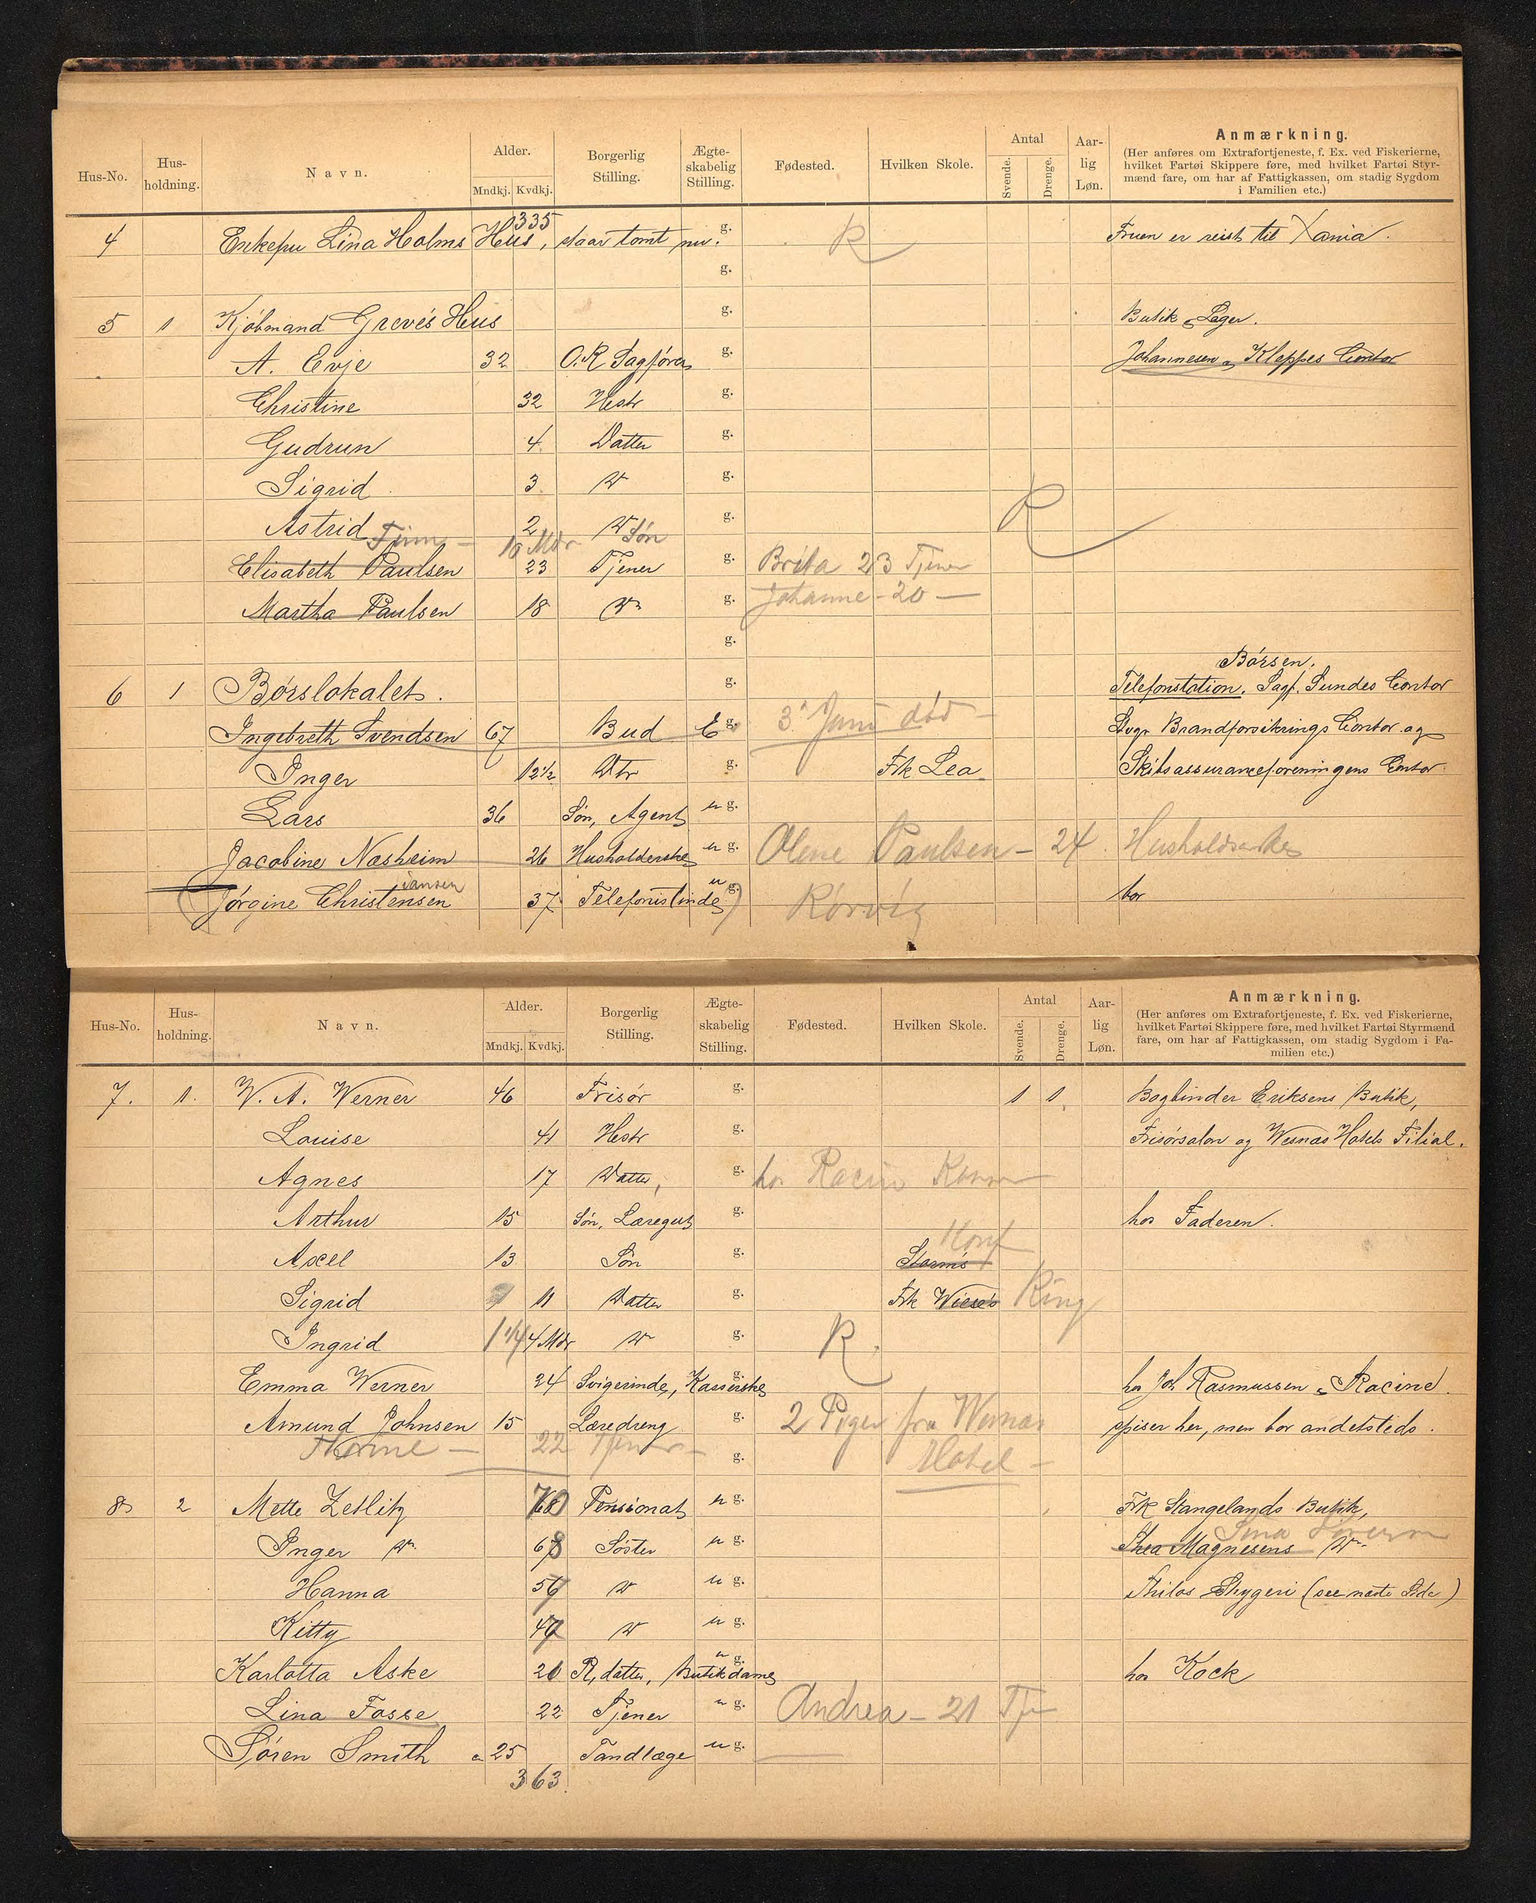 Hus-No. Hus-holdning. Navn. Alder. Mndkj. Kvdkj. Borgerlig Stilling. Ægte-skabelig Stilling. Fødested. Hvilken Skole. Antal Svende. Drenge. Aar-lig Løn. Anmærkning.
(Her anføres om Extrafortjeneste, f. Ex. ved Fiskerierne,
hvilket Fartøi Skippere føre, med hvilket Fartøi Styr-
mænd fare, om har af Fattigkassen, om stadig Sygdom
i Familien etc.)
335
4 Enkefru Lina Holms Hus, staar tomt nu. g. R Fruen er reist til Xania.
g.
5 1 Kjøbmand Greve's Hus g. Butik & Lager.
A. Evje 32 O.R Sagfører g. Johannesen & Kleppes Contor
Christine 32 Hstr g.
Gudrun 4 Datter g.
Sigrid 3 " g.
Astrid 2 " g. R
Finn — 10 Mdr Søn
Elisabeth Paulsen 23 Tjener g. Brita 23 Tjener
Martha Paulsen 18 " g. Johanne - 20 —
g.
Børsen.
6 1 Børslokalet. g. Telefonstation. Sagf. Sundes Contor
Ingebreth Svendsen 67 Bud E g. 3' Juni død Brandforsikrings Contor og
Inger 12½ Dtr g. Frk Lea Skibsassuranceforeningens Contor
Lars 36 Søn, Agent u g.
Jacobine Næsheim 26 Husholderske u g. Olene Paulsen — 24 Husholderske
Jansen
(Jørgine Christensen 37 Telefonistinde u g.) Rørvig bor
Hus-No. Hus-holdning. Navn. Alder. Mndkj. Kvdkj. Borgerlig Stilling. Ægte-skabelig Stilling. Fødested. Hvilken Skole. Antal Svende. Drenge. Aar-lig Løn. Anmærkning.
(Her anføres om Extrafortjeneste, f. Ex. ved Fiskerierne,
hvilket Fartøi Skippere føre, med hvilket Fartøi Styrmænd
fare, om har af Fattigkassen, om stadig Sygdom i Fa-
milien etc.)
7. 1. W. A. Werner 46 Frisør g. 1 1. Bogbinder Eriksens Butik,
Louise 41 Hstr g. Frisørsalon og Wesnæs Hotels Filial.
Agnes 17 Datter, g. hos Racin
Arthur 15 Søn, Læregut g. hos Faderen.
Konf
Axel 13 Søn g. Storm's
Sigrid 11 Datter g. Frk Wiese's Ring
Ingrid 1 ¼ 4 Mdr " g. R.
Emma Werner 24 Svigerinde, Kasserske g. hos Joh Rasmussen & Racine.
Amund Johnsen 15 Læredreng g. 2 Piger fra Wesnæs spiser her, men bor andetsteds.
Thorine — 22 Tjener — g. Hotel —
8 2 Mette Zetlitz 68 70 Pensionat u g. Frk Stangelands Butik,
Sina
Inger " 67 8 Søster u g. Thea Magnesens "
Hanna 56 7 " u g. Thilos Skyggeri (see næste Side)
Kitty 46 7 " u g.
Karlotta Aske 20 R, datter, Butikdame u g. hos Kock
Lina Fosse 22 Tjener u g. Andrea — 21 Tje
Søren Smith 25 Tandlæge u g.
363.